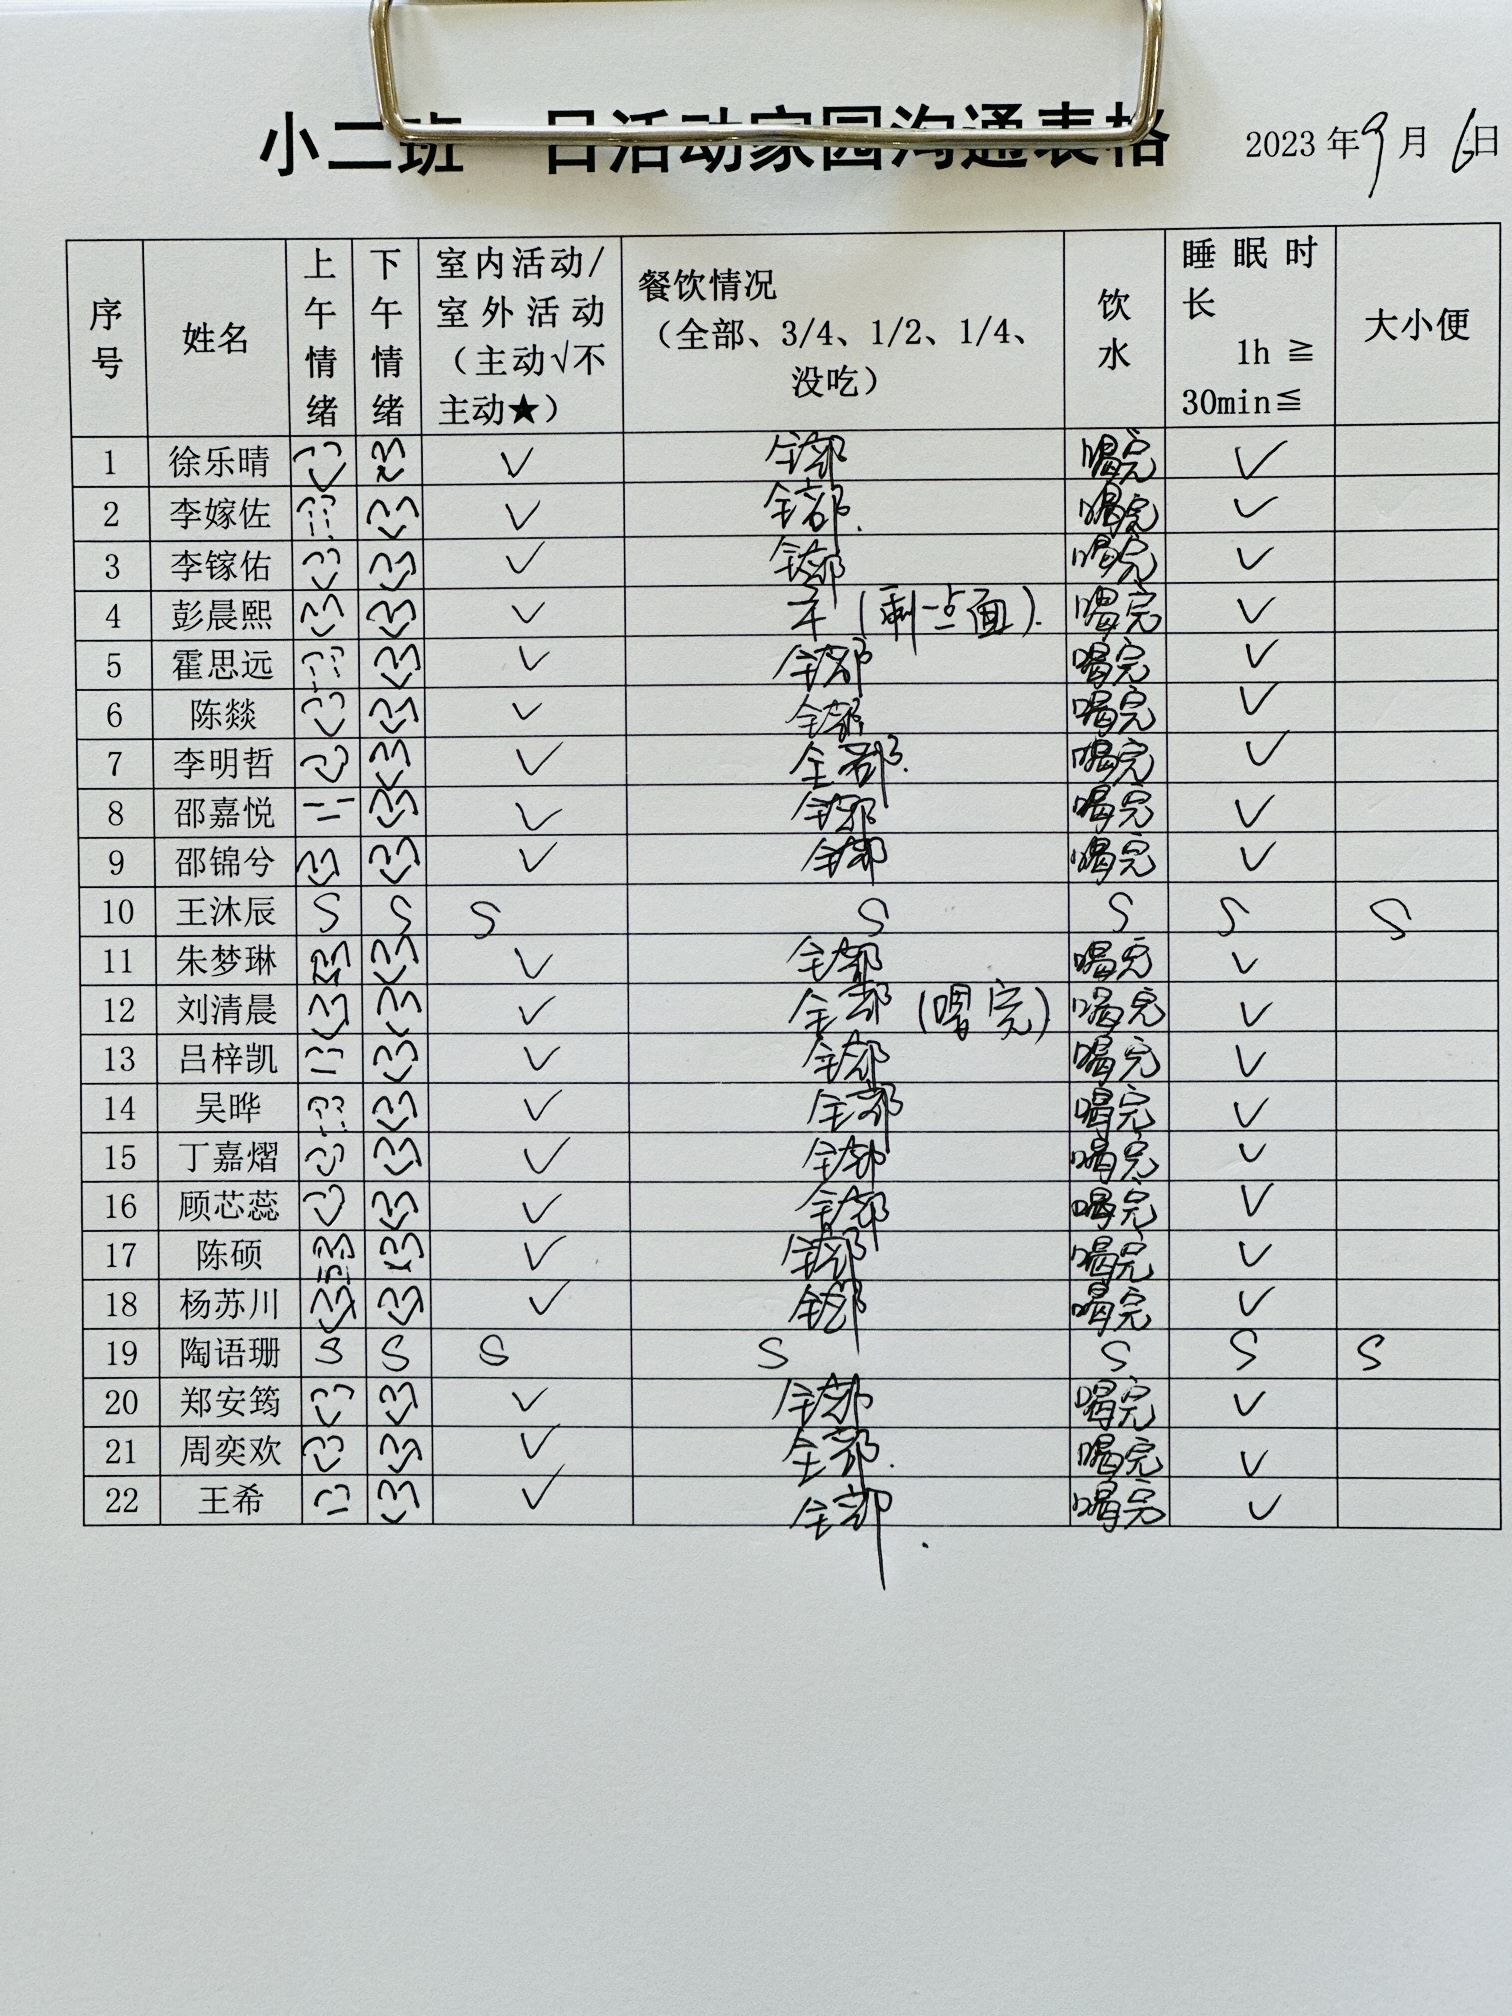 小二班一日活动家园沟通表格 2023年9月6日
序号 姓名 上午情绪 下午情绪 室内活动/室外活动（主动√不主动★） 餐饮情况（全部、3/4、1/2、1/4、没吃） 饮水 睡眠时长 1h≧ 30min≦ 大小便
1 徐乐晴 √ 全部 喝完 √
2 李嫁佐 √ 全部. 喝完 √
3 李镓佑 √ 全部 喝完 √
4 彭晨熙 √ (剩一点面). 喝完 √
5 霍思远 √ 全部 喝完 √
6 陈燚 √ 全部 喝完 √
7 李明哲 √ 全部. 喝完 √
8 邵嘉悦 √ 全部 喝完 √
9 邵锦兮 √ 全部 喝完 √
10 王沐辰 S S S S S S S
11 朱梦琳 √ 全部 喝完 √
12 刘清晨 √ 全部 (喝完) 喝完 √
13 吕梓凯 √ 全部 喝完 √
14 吴晔 √ 全部 喝完 √
15 丁嘉熠 √ 全部 喝完 √
16 顾芯蕊 √ 全部 喝完 √
17 陈硕 √ 全部 喝完 √
18 杨苏川 √ 全部 喝完 √
19 陶语珊 S S S S S S S
20 郑安筠 √ 全部 喝完 √
21 周奕欢 √ 全部. 喝完 √
22 王希 √ 全部. 喝完 √